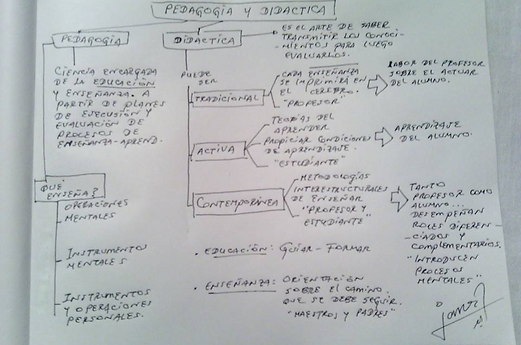 PEDAGOGÍA Y DIDÁCTICA
PEDAGOGÍA
CIENCIA ENCARGADA
DE LA EDUCACIÓN
Y ENSEÑANZA. A
PARTIR DE PLANES
DE EJECUCIÓN Y
EVALUACIÓN DE
PROCESOS DE
ENSEÑANZA-APREND.
QUÉ
ENSEÑA?
OPERACIONES
MENTALES
INSTRUMENTOS
MENTALES
INSTRUMENTOS
Y OPERACIONES
PERSONALES.
DIDÁCTICA
ES EL ARTE DE SABER
TRANSMITIR LOS CONOCI-
MIENTOS PARA LUEGO
EVALUARLOS.
PUEDE
SER
TRADICIONAL
CADA ENSEÑANZA
SE IMPRIMIRÁ EN
EL CEREBRO.
"PROFESOR"
LABOR DEL PROFESOR
SOBRE EL ACTUAR
DEL ALUMNO.
ACTIVA
TEORÍAS DEL
APRENDER
PROPICIAR CONDICIONES
DE APRENDIZAJE.
"ESTUDIANTE"
APRENDIZAJE
DEL ALUMNO.
CONTEMPORÁNEA
METODOLOGÍAS
INTERESTRUCTURALES
DE ENSEÑAR
"PROFESOR Y
ESTUDIANTE"
TANTO
PROFESOR COMO
ALUMNO...
DESEMPEÑAN
ROLES DIFEREN-
CIADOS Y
COMPLEMENTARIOS.
"INTRODUCEN
PROCESOS
MENTALES"
. EDUCACIÓN: GUIAR - FORMAR
. ENSEÑANZA: ORIENTACIÓN
SOBRE EL CAMINO
QUE SE DEBE SEGUIR.
"MAESTROS Y PADRES"